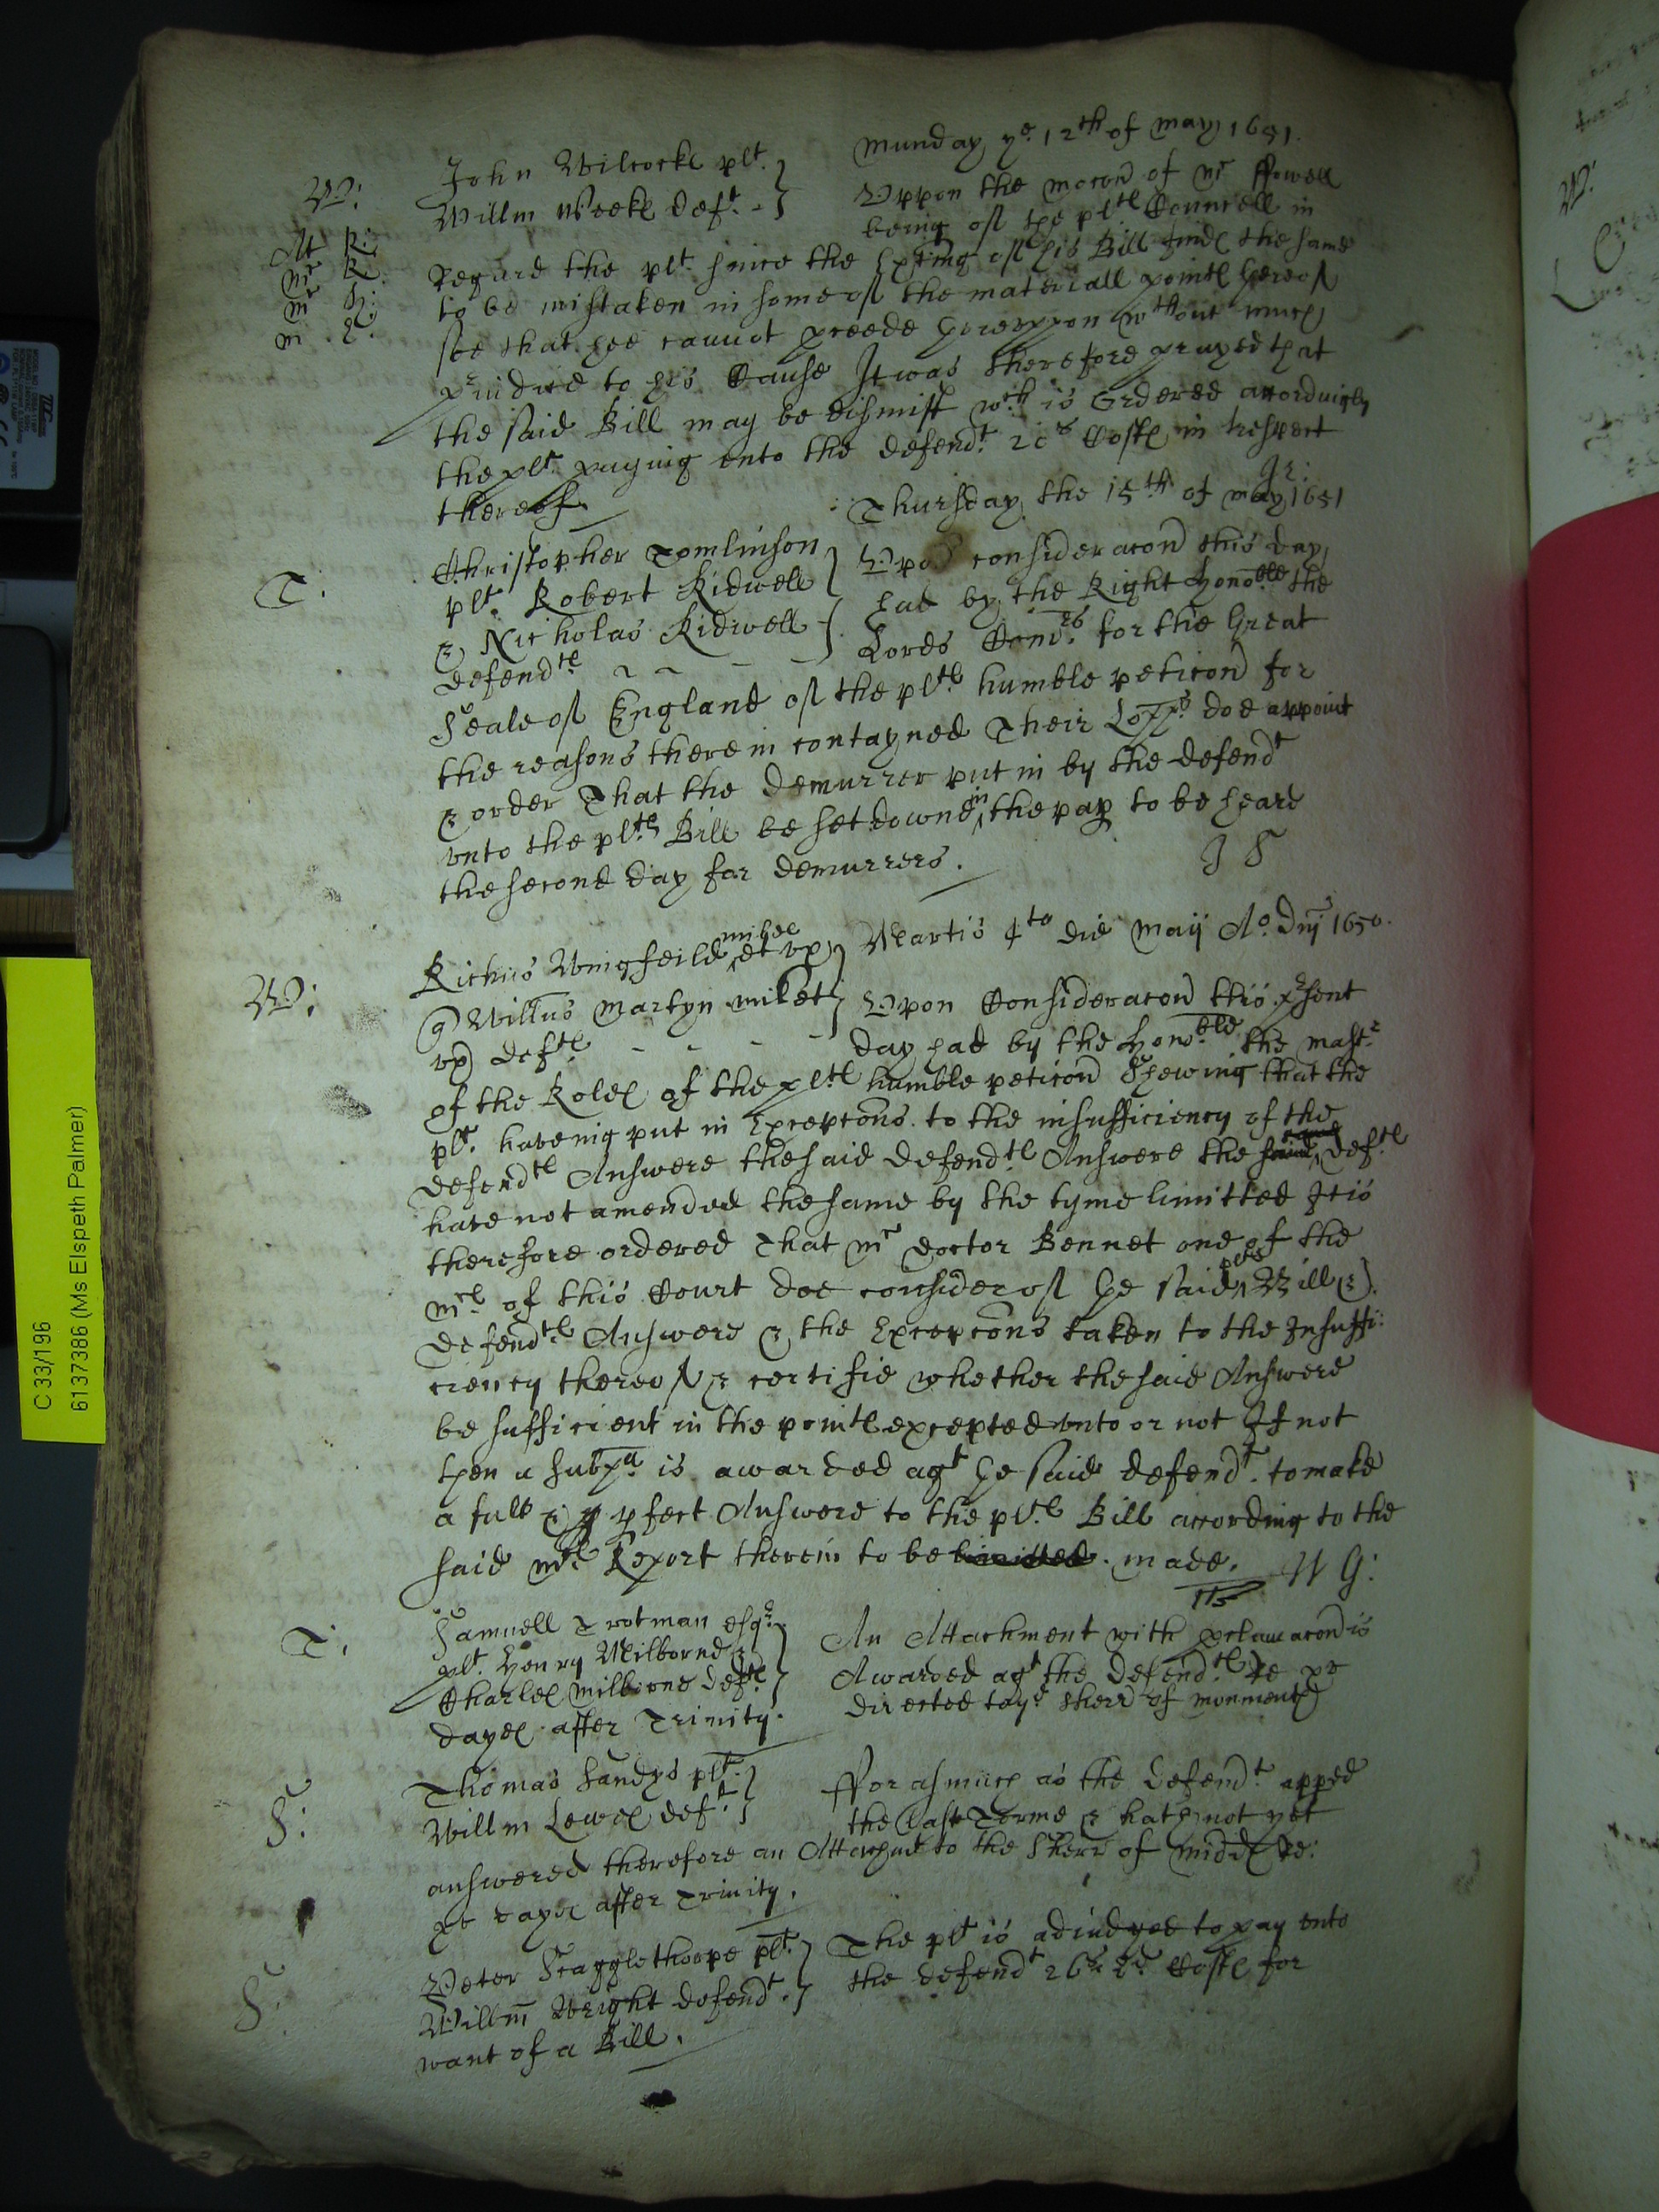 Munday ye. 12th of May 1651.
W: John Wilcocke plt. Uppon the mocon of Mr ffowell
Willm Weeke deft. being of the pltes Councell in
Regard the plt. since the Exhting of his Bill findes the same
to be mistaken in some of the materiall pointes thereof
soe that hee cannot proceede thereuppon wthout much
preiudice to his Cause It was therefore prayed that
the said Bill may be dismist wch is Ordered accordingly
the plt. paying unto the defendt. 20s Costes in respect
thereof.
Thursday the 15th of May 1651
T: Christopher Tomlinson Upon consideracon this day
plt. Robert Kidwell had by the Right Honoble the
& Nicholas Kidwell Lords Comrs for the Great
defendtes
Seale of England of the pltes humble peticon for
the reasons therein contayned Their Lopps doe appoint
& order That the demurrer put in by the defendt
unto the pltes Bill be set downe in the pap to be heard
the second day for demurrers. J S
W: Richus Wingfeild miles et ux Martis 4to die Maij Ao. Dnj 1650.
q Willus Martyn milet Upon Consideracon this psent
ux deftes day had by the Honoble the Mastr
of the Roles of the pltes humble peticon Shewing that the
plt. haveing put in Excepcons to the insufficiency of the
defendtes Answere the said defendtes Answere the said deftes
have not amended the same by the tyme limitted It is
therefore ordered That Mr Doctor Bennet one of the
Mrs of this Court doe consider of the said pltes Bill &
defendtes Answere & the Excepcons taken to the Insuffi:
ciency thereof & certifie whether the said Answere
be sufficient in the pointes excepted unto or not If not
then a subpa is awarded agt the said defendt. to make
a full & pfect Answere to the pltes Bill according to the
said Mrs Report therein to be limitted made. W G:
T: Samuell Trotman esqr. An Attachment with proclamacon is
plt. Henry Milborne & Awarded agt the defendtes re xv
Charles Milborne deftes directed to ye Sherr of Monmouth
dayes after Trinity.
S: Thomas Sandys plt. fforasmuch as the defendt apped
Willm Lewes deft. the last Terme & hath not yet
answered therefore an Attachmt to the Sherr of Midd re:
xv dayes after Trinity.
S: Peter Scagglethorpe plt. The plt is adiudged to pay unto
Willm Wright defendt. the defendt 26s 8d Costes for
want of a Bill.
C 33/196
6137386 (Ms Elspeth Palmer)